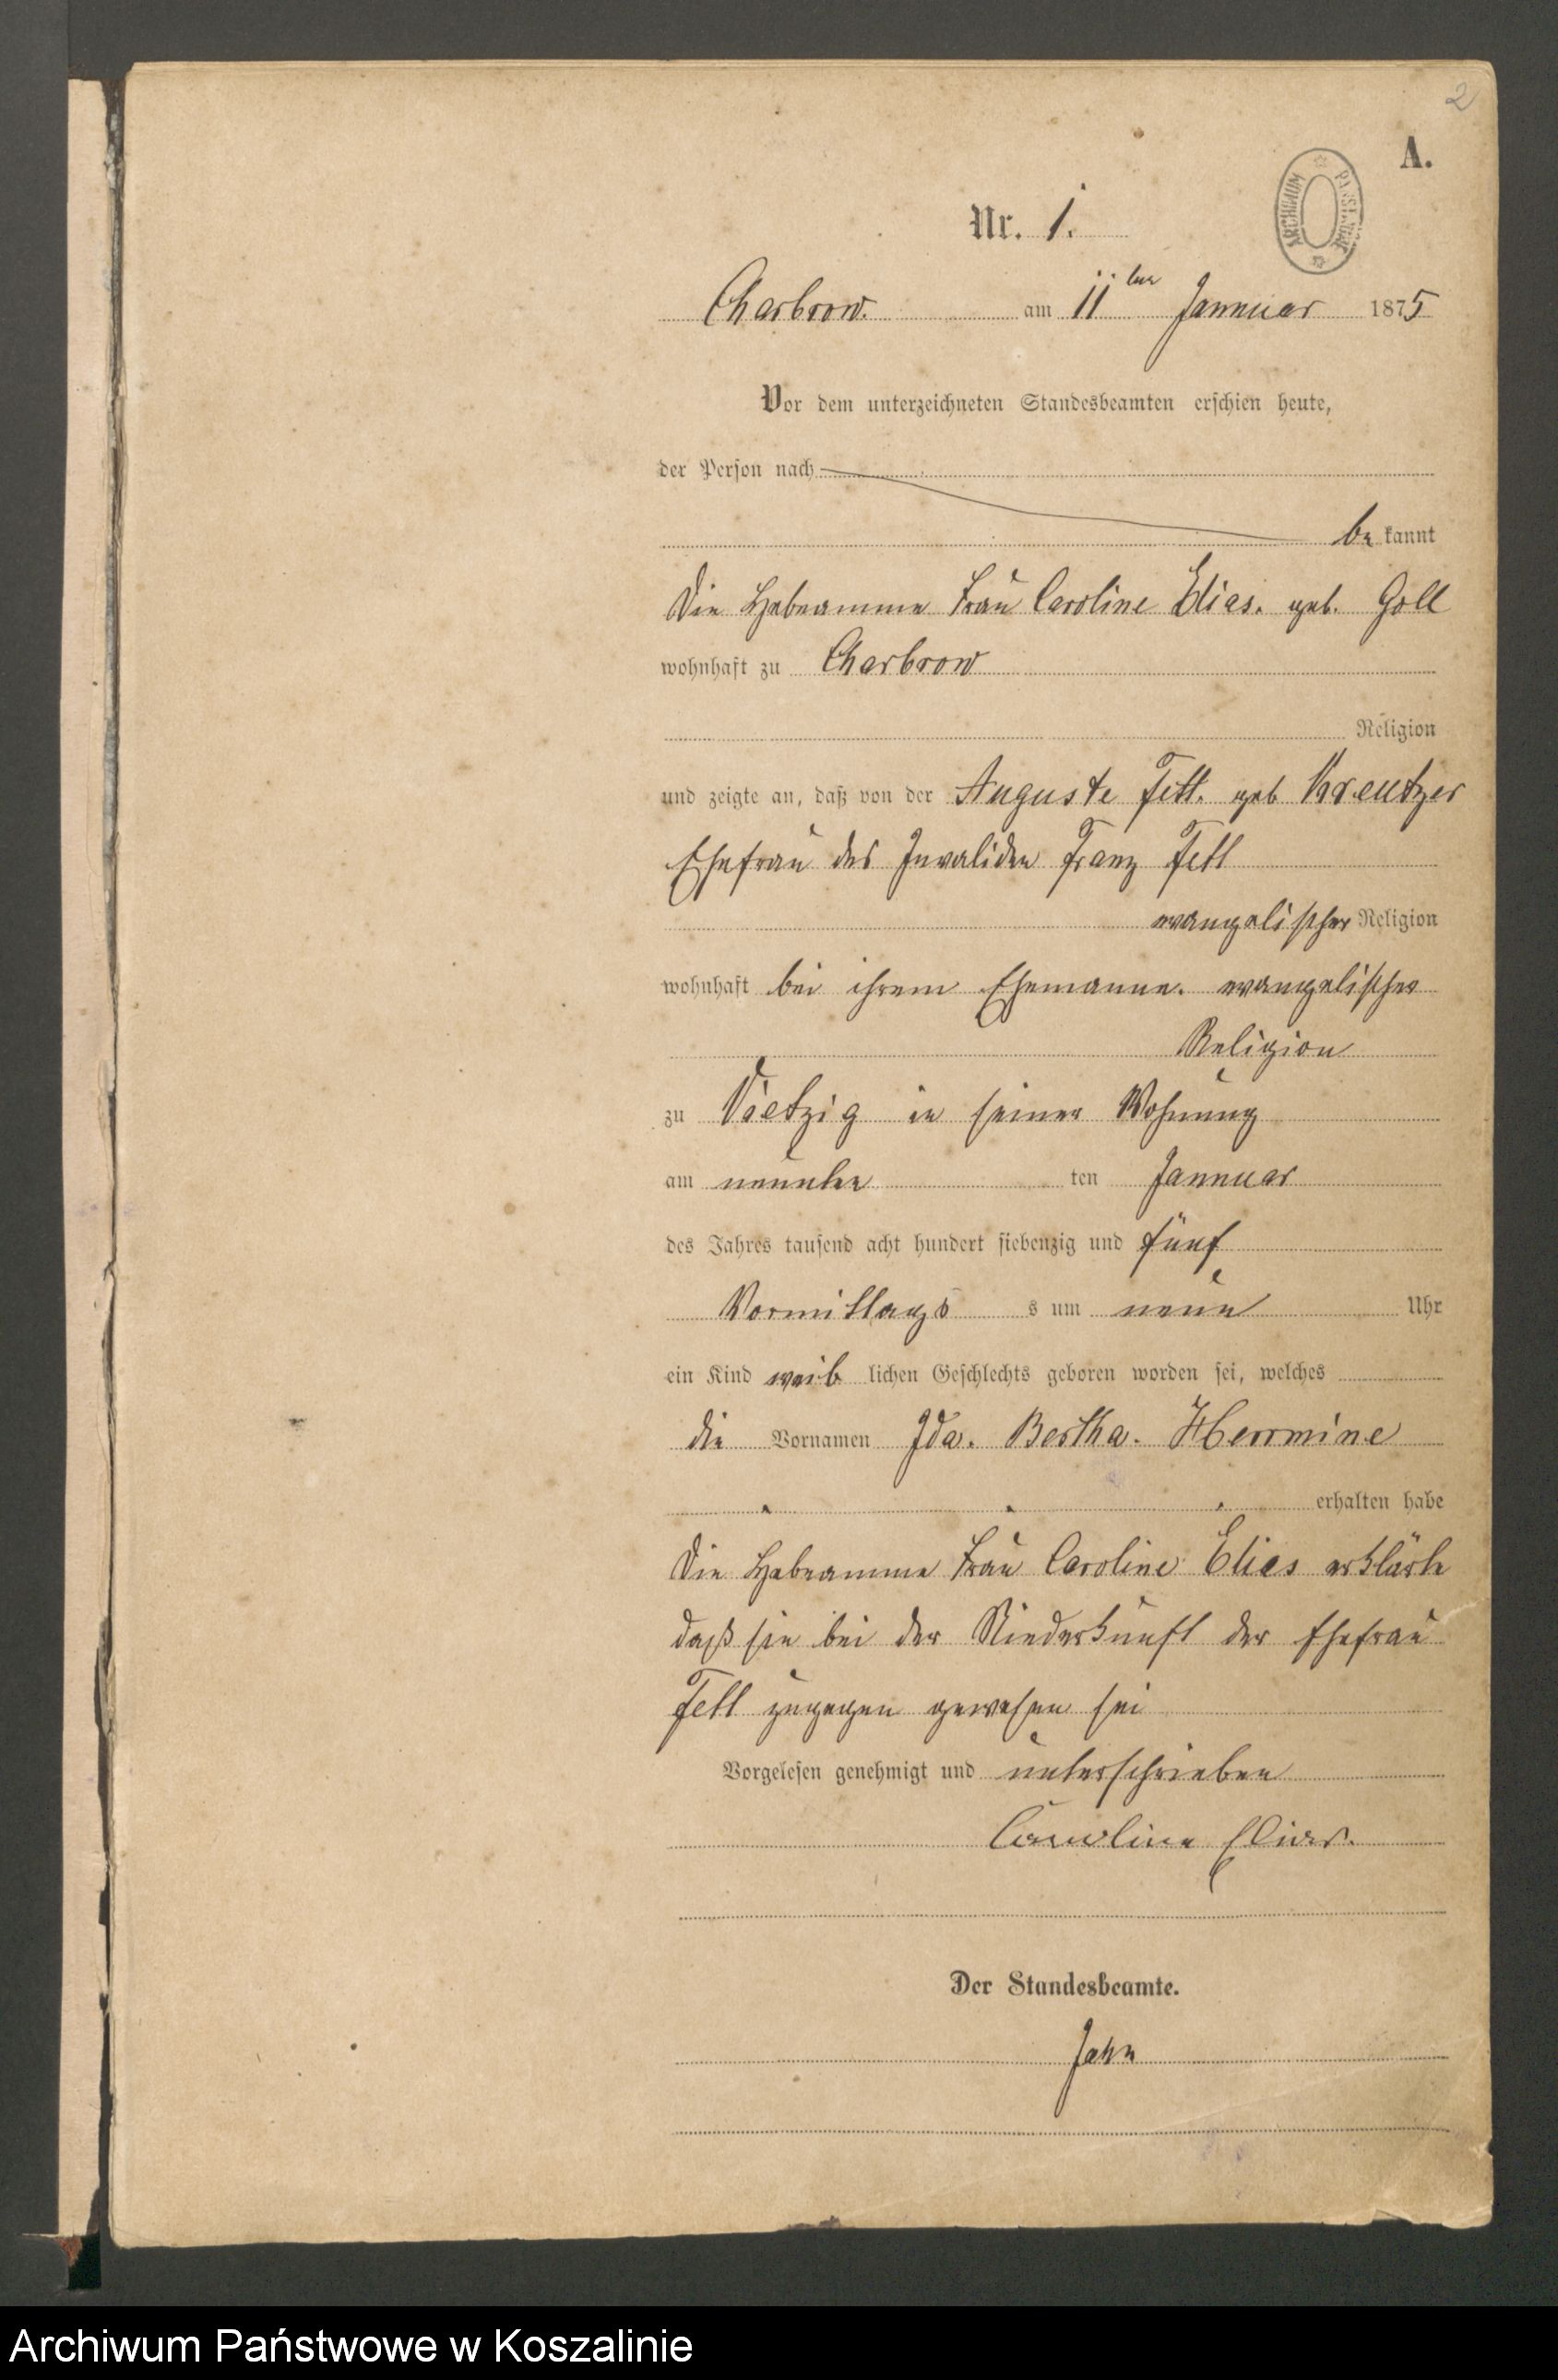 2
A.
ARCHIWUM PAŃSTWOWE
Nr. 1.
Charbrow. am 11ten Jannuar 1875
Vor dem unterzeichneten Standesbeamten erschien heute,
der Person nach
be kannt
Die Hebeamme Frau Caroline Elias. geb. Goll
wohnhaft zu Charbrow
Religion
und zeigte an, daß von der Auguste Fett. geb Kreutzer
Ehefrau des Invaliden Franz Fett
evangelischer Religion
wohnhaft bei ihrem Ehemanne. evangelischer
Religion
zu Vietzig in seiner Wohnung
am neunten ten Jannuar
des Jahres tausend acht hundert siebenzig und fünf
Vormittags s um neun Uhr
ein Kind weib lichen Geschlechts geboren worden sei, welches
die Vornamen Ida. Bertha. Herrmine
erhalten habe
Die Hebeamme Frau Caroline Elias erklärte
daß sie bei der Niederkunft der Ehefrau
Fett zugegen gewesen sei
Vorgelesen genehmigt und unterschrieben
Caroline Elias.
Der Standesbeamte.
Jahn
Archiwum Państwowe w Koszalinie